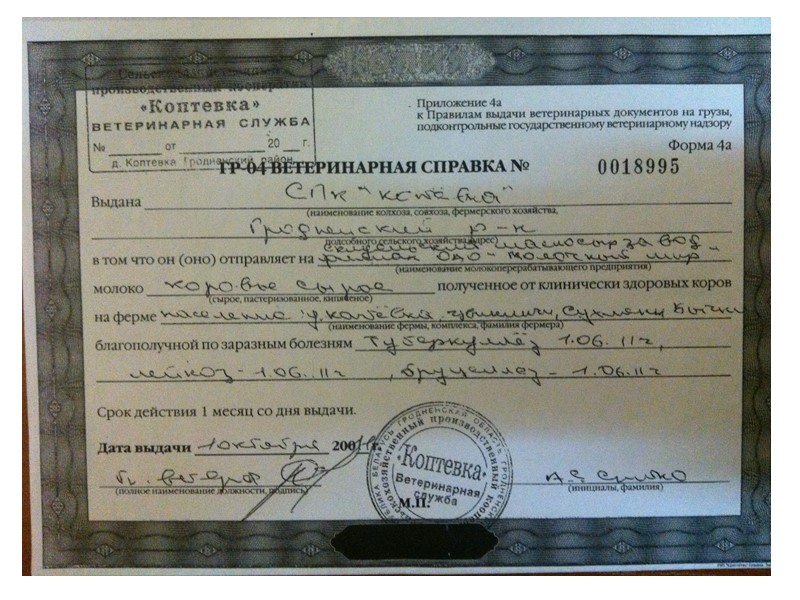 Сельскохозяйственный
производственный кооператив
«Коптевка»
ВЕТЕРИНАРНАЯ СЛУЖБА
№ от 20 г.
д. Коптевка Гродненский район
Приложение 4а
к Правилам выдачи ветеринарных документов на грузы,
подконтрольные государственному ветеринарному надзору
Форма 4а
ГР-04 ВЕТЕРИНАРНАЯ СПРАВКА № 0018995
Выдана СПК "Коптёвка"
(наименование колхоза, совхоза, фермерского хозяйства,
Гродненский р-н
подсобного сельского хозяйства, адрес)
маслосырзавод
в том что он (оно) отправляет на филиал ОАО - Молочный мир
(наименование молокоперерабатывающего предприятия)
молоко коровье сырое полученное от клинически здоровых коров
(сырое, пастеризованное, кипяченое)
на ферме население
(наименование фермы, комплекса, фамилия фермера)
благополучной по заразным болезням Туберкуллёз 1.06.11г,
лейкоз - 1.06.11г, бруцеллёз - 1.06.11г
Срок действия 1 месяц со дня выдачи.
Дата выдачи 1 октября 200 г.
Гл. ветврач
(полное наименование должности, подпись)
М.П.
(инициалы, фамилия)
«Коптевка»
Ветеринарная
служба